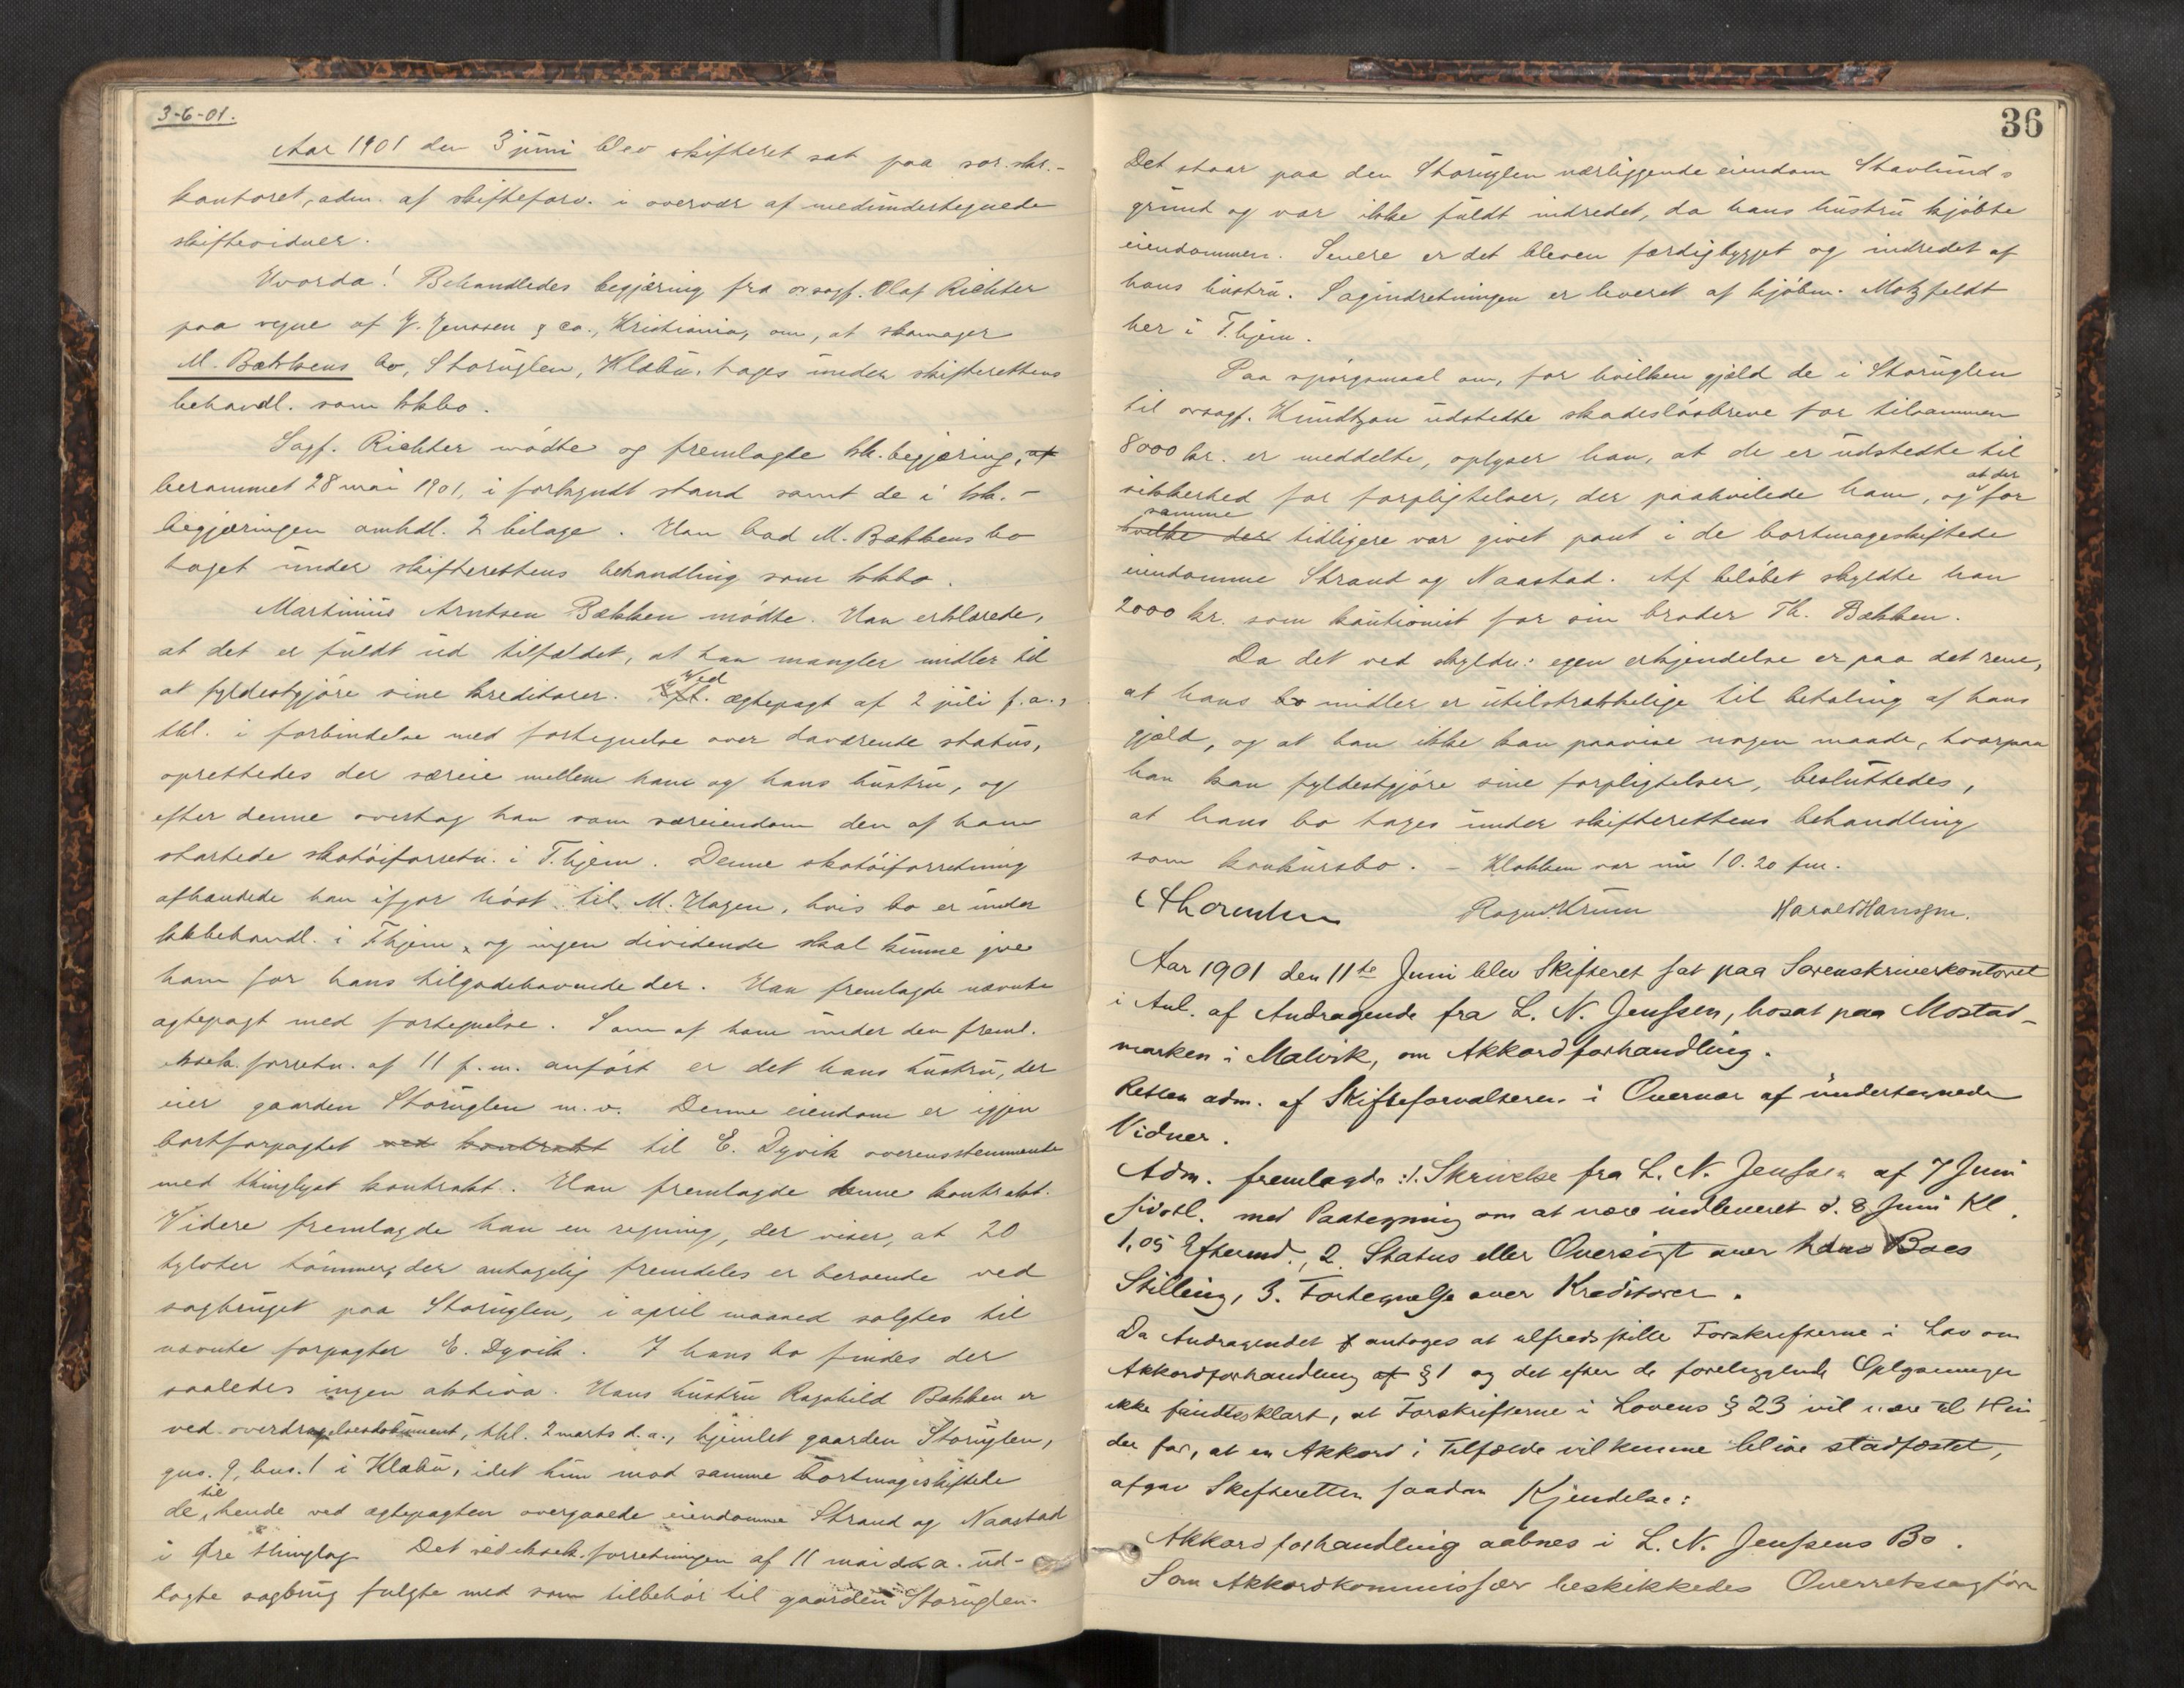 3-6-01.
Aar 1901 den 3 juni blev skifteret sat paa sor.skr.-
kontoret, adm. af skifteforv. i overvær af medundertegnede
skiftevidner.
Hvorda! Behandledes begjæring fra orsagf. Olaf Richter
paa vegne af J. Jenssen & co., Kristiania, om, at skomager
M. Bækkens bo, Storuglen, Klæbu, tages under skifterettens
behandl. som kkbo.
Sagf. Richter mødte og fremlagte kk.begjæring, af
berammet 28 mai 1901, i forkyndt stand samt de i kk.-
begjæringen omhdl. 2 bilage. Han bad M. Bækkens bo
taget under skifterettens behandling som kkbo.
Martinius Arntsen Bækken mødte. Han erklærede,
at det er fuldt ud tilfældet, at han mangler midler til
at fyldestgjøre sine kreditorer. Ved ægtepagt af 2 juli f.a.,
thl. i forbindelse med fortegnelse over daværende status,
oprettedes der særeie mellem ham og hans hustru, og
efter denne overtog han som særeiendom den af ham
startede skotøiforretn. i T.hjem. Denne skotøiforretning
afhændede han ifjor høst til M. Hagen, hvis bo er under
kkbehandl. i T.hjem, og ingen dividende skal kunne give
ham for hans tilgodehavende der. Han fremlagde nævnte
ægtepagt med fortegnelse. Som af ham under den freml.
exek.forretn. af 11 f.m. anført er det hans hustru, der
eier gaarden Storuglen m.v. Denne eiendom er igjen
bortforpagtet ved kontrakt til E. Dyvik overensstemmende
med thinglyst kontrakt. Han fremlagde denne kontrakt.
Videre fremlagde han en regning, der viser, at 20
tylvter tømmer, der antagelig fremdeles er beroende ved
sagbruget paa Storuglen, i april maaned solgtes til
nævnte forpagter E. Dyvik. I hans bo findes der
saaledes ingen aktiva. Hans hustru Ragnhild Bækken er
ved overdragelsesdokument, thl. 2 marts d.a., hjemlet gaarden Storuglen,
gno. 9, bno. 1 i Klæbu, idet hun mod samme bortmageskiftede
de til hende ved ægtepagten overgaaede eiendomme Strand og Naastad
i Øre thinglag. Det ved exek.forretningen af 11 mai d.a. ud-
lagte sagbrug fulgte med som tilbehør til gaarden Storuglen.
36
Det staar paa den Storuglen nærliggende eiendom Stavlunds
grund og var ikke fuldt indredet, da hans hustru kjøbte
eiendommen. Senere er det bleven færdigbygget og indredet af
hans hustru. Sagindretningen er leveret af kjøbm. Motzfeldt
her i T.hjem.
Paa spørgsmaal om, for hvilken gjæld de i Storuglen
til orsagf. Kundtzon udstedte skadesløsbreve for tilsammen
8000 kr. er meddelte, oplyser han, at de er udstedte til
sikkerhed for forpligtelser, der paahvilede ham, og at der for
samme hvilke der tidligere var givet pant i de bortmageskiftede
eiendomme Strand og Naastad. Af beløbet skyldte han
2000 kr. som kautionist for sin broder Th. Bækken.
Da det ved skyldn: egen erkjendelse er paa det rene,
at hans bo midler er utilstrækkelige til betaling af hans
gjæld, og at han ikke kan paavise nogen maade, hvorpaa
han kan fyldestgjøre sine forpligtelser, besluttedes,
at hans bo tages under skifterettens behandling
som konkursbo. - Klokken var nu 10.20 fm.
Harald Hanssen.
Aar 1901 den 11te Juni blev Skifteret sat paa Sorenskriverkontoret
i Anl. af Andragende fra L. N. Jenssen, bosat paa Mostad-
marken i Malvik, om Akkordforhandling.
Retten adm. af Skifteforvalteren i Overvær af undertegnede
Vidner.
Adm. fremlagde: 1. Skrivelse fra L. N. Jenssen af 7 Juni
sidstl. med Paategning om at være indleveret d. 8 Juni Kl.
1,05 Eftermd., 2. Status eller Oversigt over hans Boes
Stilling, 3. Fortegnelse over Kreditorer.
Da Andragendet antages at tilfredsstille Forskrifterne i Lov om
Akkordforhandling af § 1 og det efter de foreliggende Oplysninger
ikke findes klart, at Forskrifterne i Lovens § 23 vil være til Hin
der for, at en Akkord i Tilfælde vil kunne blive stadfæstet,
afgav Skifteretten saadan Kjendelse:
Akkordforhandling aabnes i L. N. Jenssens Bo.
Som Akkordkommissær beskikkedes Overretssagfører